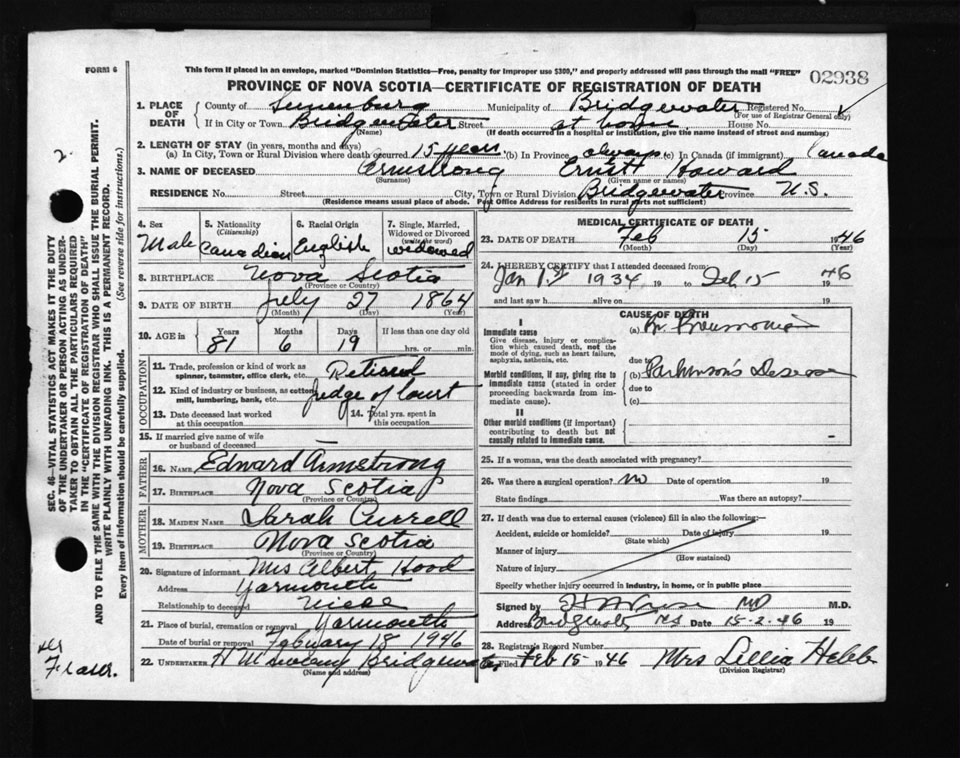 FORM 6
This form if placed in an envelope, marked "Dominion Statistics—Free, penalty for improper use $300," and properly addressed will pass through the mail "FREE"
02938
PROVINCE OF NOVA SCOTIA—CERTIFICATE OF REGISTRATION OF DEATH
1. PLACE OF DEATH
County of Lunenburg Municipality of Bridgewater Registered No.
(For use of Registrar General only)
If in City or Town Bridgewater Street at home House No.
(Name) (If death occurred in a hospital or institution, give the name instead of street and number)
2. LENGTH OF STAY (in years, months and days)
(a) In City, Town or Rural Division where death occurred 15 years (b) In Province always (c) In Canada (if immigrant) Canada
3. NAME OF DECEASED Armstrong Ernest Howard
(Surname) (Given name or names)
RESIDENCE No. Street City, Town or Rural Division Bridgewater Province N.S.
(Residence means usual place of abode. Post Office Address for residents in rural parts not sufficient)
4. Sex Male
5. Nationality (Citizenship) Canadian
6. Racial Origin English
7. Single, Married, Widowed or Divorced (write the word) widowed
8. BIRTHPLACE Nova Scotia
(Province or Country)
9. DATE OF BIRTH July 27 1864
(Month) (Day) (Year)
10. AGE in Years Months Days If less than one day old
81 6 19 hrs. or min.
OCCUPATION
11. Trade, profession or kind of work as spinner, teamster, office clerk, etc. Retired
12. Kind of industry or business, as cotton mill, lumbering, bank, etc. Judge of Court
13. Date deceased last worked at this occupation
14. Total yrs. spent in this occupation
15. If married give name of wife or husband of deceased —
FATHER
16. NAME Edward Armstrong
17. BIRTHPLACE Nova Scotia
(Province or Country)
MOTHER
18. MAIDEN NAME Sarah Currell
19. BIRTHPLACE Nova Scotia
(Province or Country)
20. Signature of informant Mrs Albert Hood
Address Yarmouth
Relationship to deceased Niece
21. Place of burial, cremation or removal Yarmouth
Date of burial or removal February 18 1946
22. UNDERTAKER Bridgewater
(Name and address)
MEDICAL CERTIFICATE OF DEATH
23. DATE OF DEATH Feb 15 1946
(Month) (Day) (Year)
24. I HEREBY CERTIFY that I attended deceased from:
Jan 1934 19 to Feb 15 1946
and last saw h alive on 19
CAUSE OF DEATH
I
Immediate cause
Give disease, injury or complication which caused death, not the mode of dying, such as heart failure, asphyxia, asthenia, etc.
(a) Pneumonia
due to
Morbid conditions, if any, giving rise to immediate cause (stated in order proceeding backwards from immediate cause).
(b) Parkinson's Disease
due to
(c)
II
Other morbid conditions (if important) contributing to death but not causally related to immediate cause.
25. If a woman, was the death associated with pregnancy?
26. Was there a surgical operation? No Date of operation 19
State findings Was there an autopsy?
27. If death was due to external causes (violence) fill in also the following:—
Accident, suicide or homicide? Date of injury 19
(State which)
Manner of injury
(How sustained)
Nature of injury
Specify whether injury occurred in industry, in home, or in public place
Signed by MD M.D.
Address NS Date 15-2-46 19
28. Registrars Record Number
Filed Feb 15 1946 Mrs Lillia Hebb
(Division Registrar)
SEC. 46—VITAL STATISTICS ACT MAKES IT THE DUTY
OF THE UNDERTAKER OR PERSON ACTING AS UNDERTAKER
TO OBTAIN ALL THE PARTICULARS REQUIRED
IN THE "CERTIFICATE OF REGISTRATION OF DEATH"
AND TO FILE THE SAME WITH THE DIVISION REGISTRAR WHO SHALL ISSUE THE BURIAL PERMIT.
WRITE PLAINLY WITH UNFADING INK. THIS IS A PERMANENT RECORD.
Every item of information should be carefully supplied. (See reverse side for instructions.)
2.
Fraser.